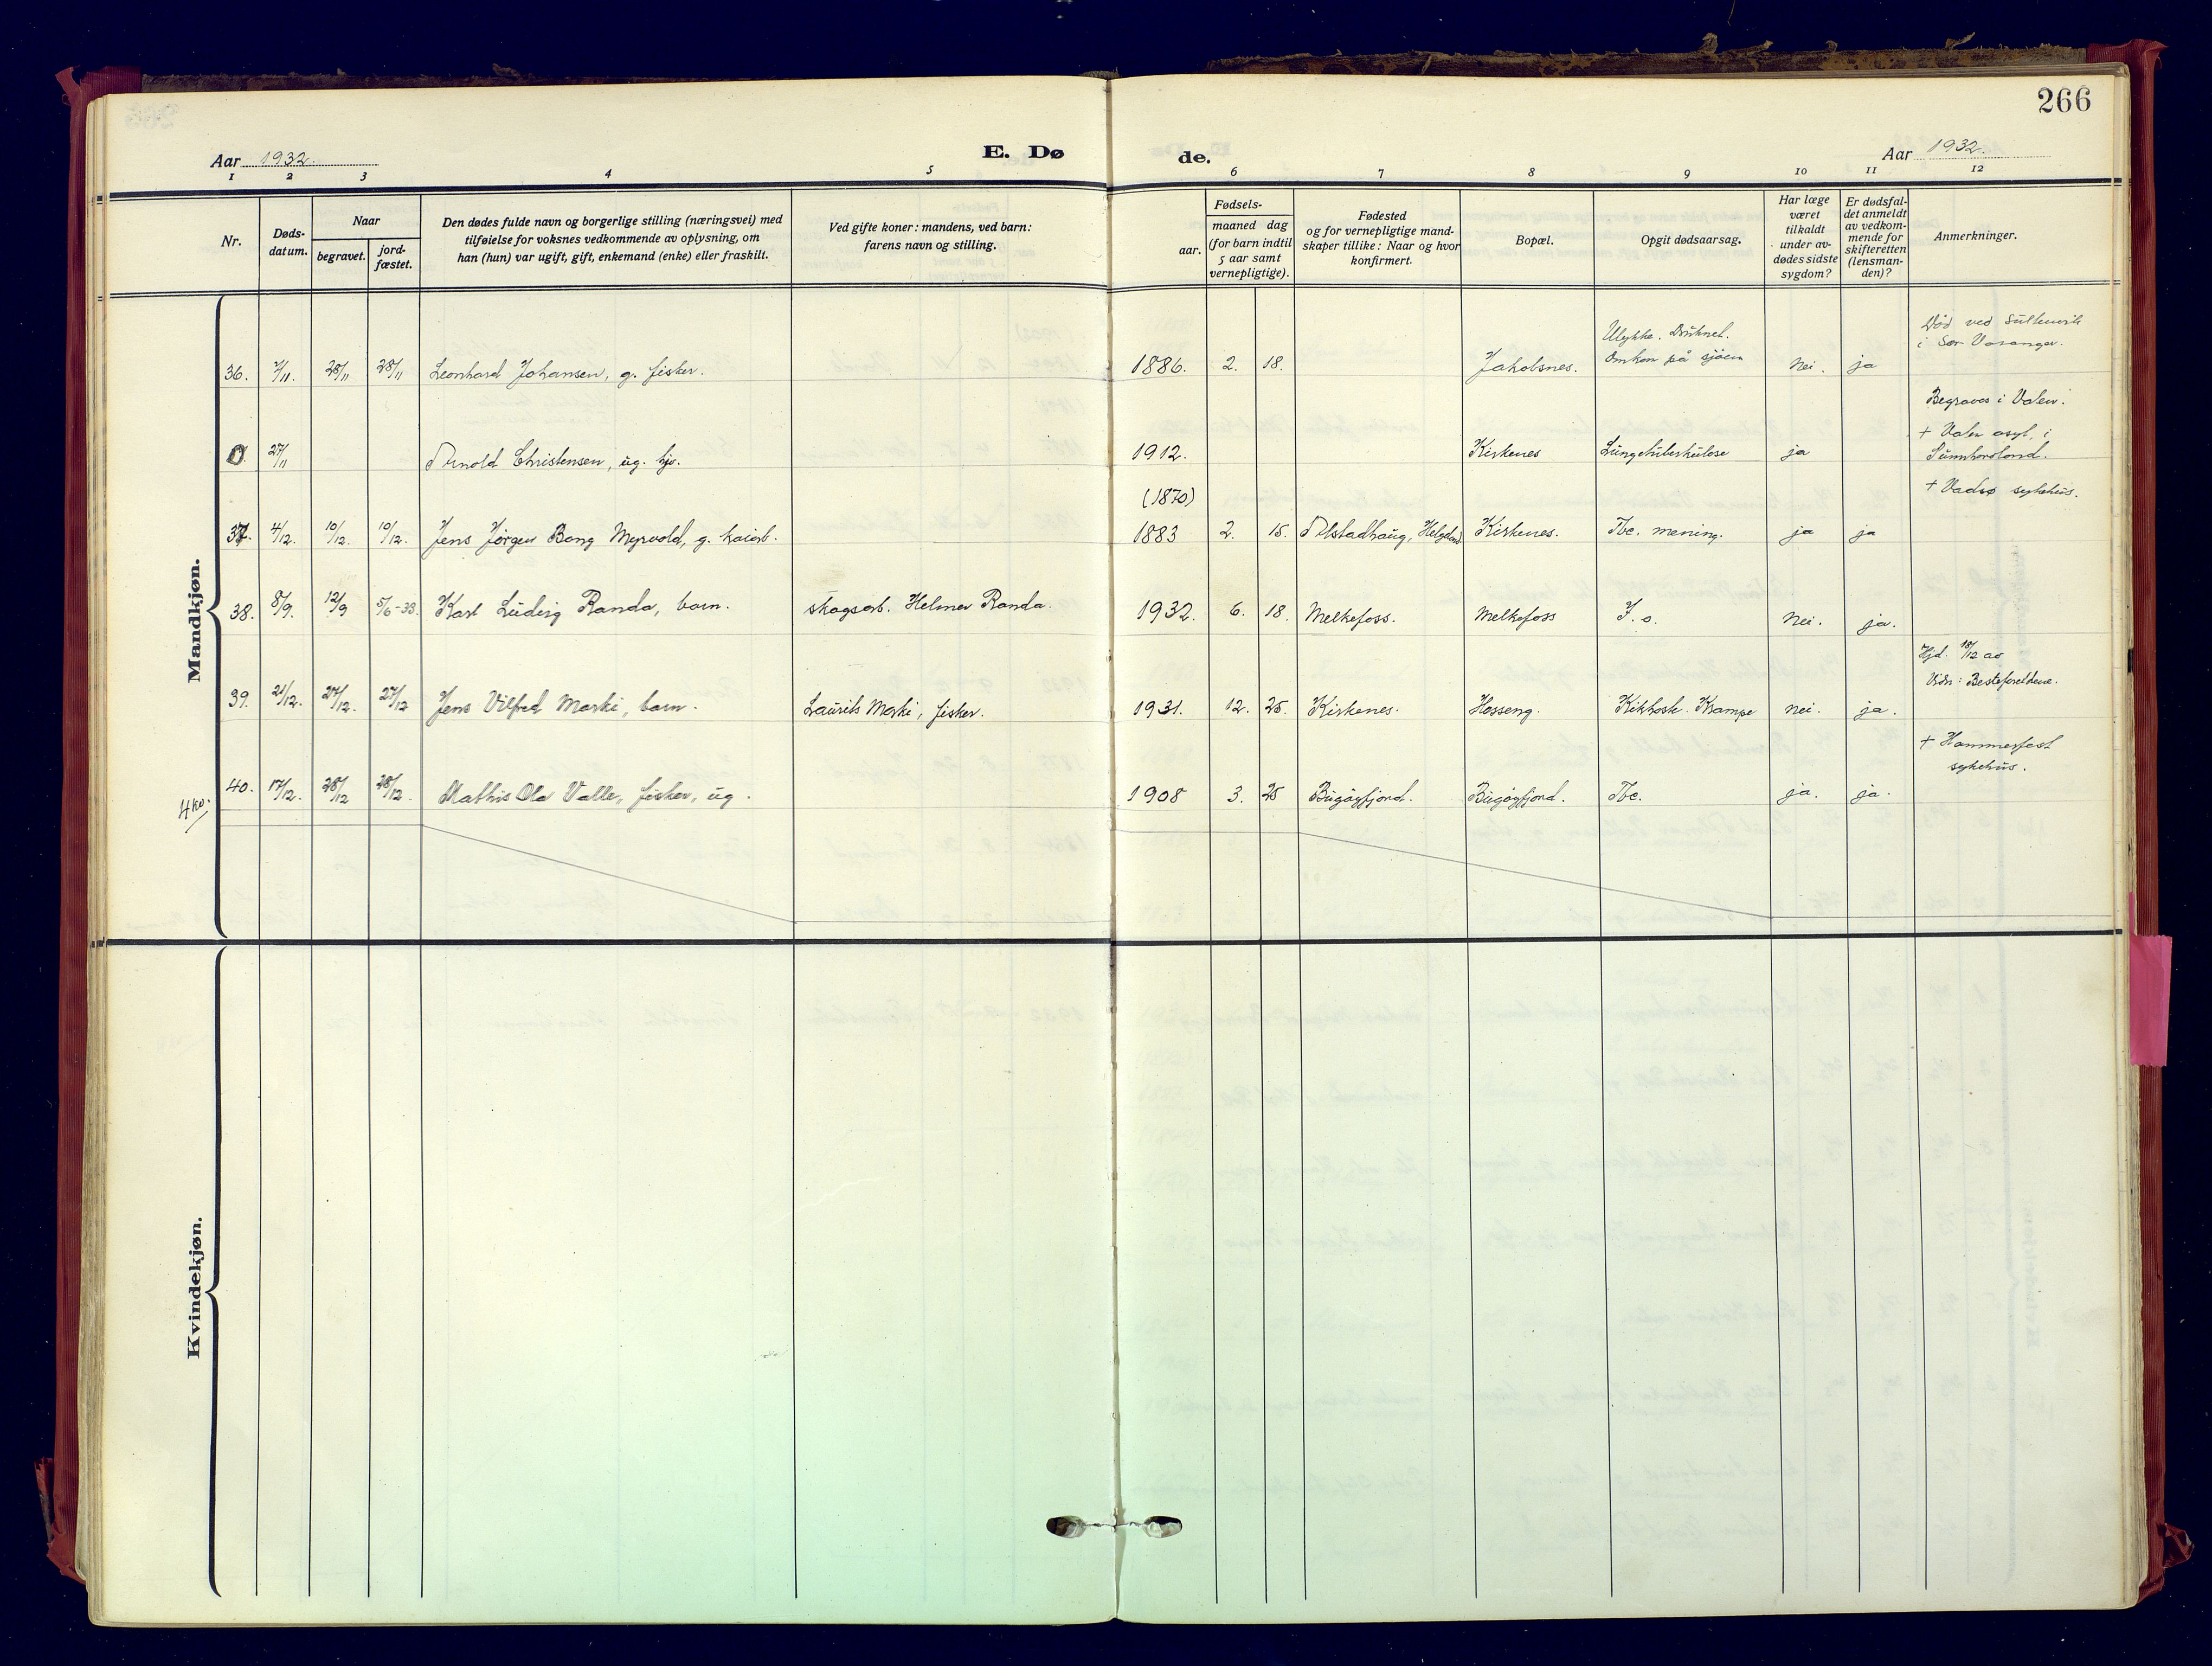 266
Aar 1932.
E. Dø
de.
Aar 1932.
1 2 3 4 5 6 7 8 9 10 11 12
Nr.
Døds-
datum.
Naar
begravet.
jord-
fæstet.
Den dødes fulde navn og borgerlige stilling (næringsvei) med
tilføielse for voksnes vedkommende av oplysning, om
han (hun) var ugift, gift, enkemand (enke) eller fraskilt.
Ved gifte koner: mandens, ved barn:
farens navn og stilling.
Fødsels-
aar.
maaned dag
(for barn indtil
5 aar samt
vernepligtige).
Fødested
og for vernepligtige mand-
skaper tillike: Naar og hvor
konfirmert.
Bopæl.
Opgit dødsaarsag.
Har læge
været
tilkaldt
under av-
dødes sidste
sygdom?
Er dødsfal-
det anmeldt
av vedkom-
mende for
skifteretten
(lensman-
den)?
Anmerkninger.
Mandkjøn.
Ulykke. Druknet.
Død ved
i Sør Varanger.
36. 28/11 28/11 Leonhard Johansen, g. fisker. 1886. 2. 18. Jakobsnes. Omkom på sjøen nei. ja
Begraves i Valen.
+ Valen asyl, i
0. 27/11 Arnold Christensen, ug. 1912. Kirkenes Lungetuberkulose ja Sunnhordland.
(1870) + Vadsø sykehus.
37. 4/12. 10/12. 10/12. Jens Jørgen Bang Myrvold, g. kaiarb. 1883 2. 15. Alstadhaug, Helgeland Kirkenes. Tbc. mening. ja ja
38. 8/9. 12/9 5/6-33. Karl Ludvig Randa, barn. skogsarb. Helmer Randa. 1932. 6. 18. Melkefoss. Melkefoss I. o. nei. ja.
Hjd. 18/12 av
Vidn: Besteforeldrene.
39. 21/12. 27/12. 27/12 Jens Vilfred Marki, barn. Laurits Marki, fisker. 1931. 12. 25. Kirkenes. Hosseng. Kikhoste. Krampe nei. ja.
+ Hammerfest
sykehus.
40. 17/12. 28/12 28/12. Mathis Ole Valle, fisker, ug. 1908 3. 25 Bugøyfjord. Bugøyfjord. Tbc. ja. ja.
Kvindekjøn.